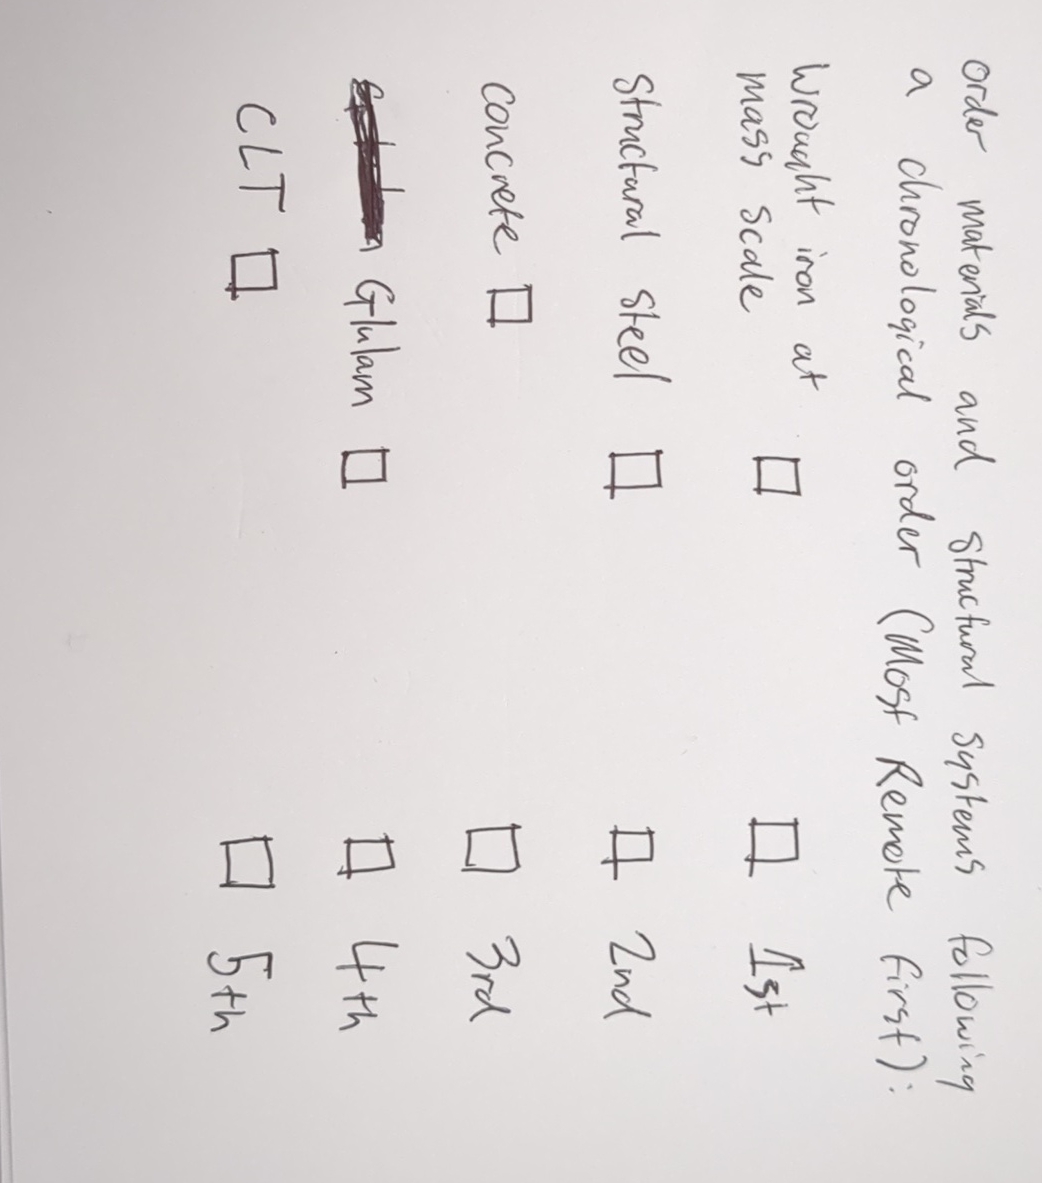 Order materials and structural systems following
a chronological order (Most Remote first):
Wrought iron at
mass scale
1st
Structural steel
2nd
Concrete
3rd
Glulam
4th
CLT
5th